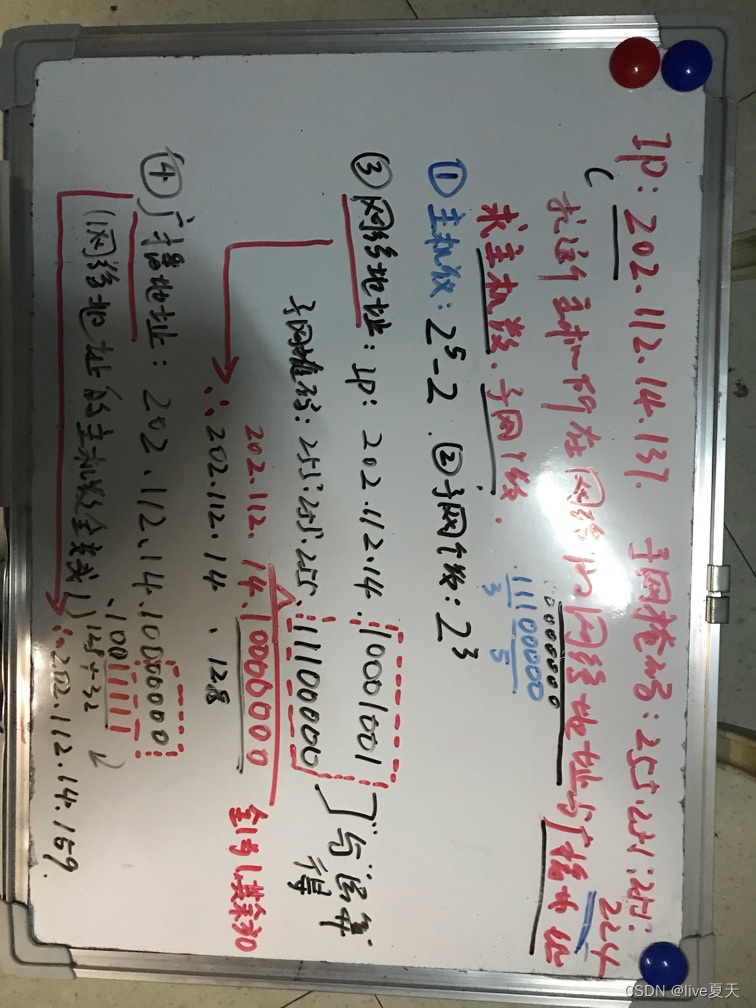 IP: 202.112.14.137. 子网掩码: 255.255.255.224
(求这个主机所在网络的网络地址与广播地址
求主机数. 子网个数.
00000000
11100000
3 5
① 主机数: 2⁵-2. ② 子网个数: 2³
③ 网络地址: IP: 202.112.14.10001001
子网掩码: 255.255.255.11100000
"与"运算得
202.112.14.10000000 全1为1其余为0
∴ 202.112.14.128
④ 广播地址: 202.112.14.10000000
(网络地址的主机段全变成1) .10011111
128+32
∴ 202.112.14.159.
CSDN @live夏天